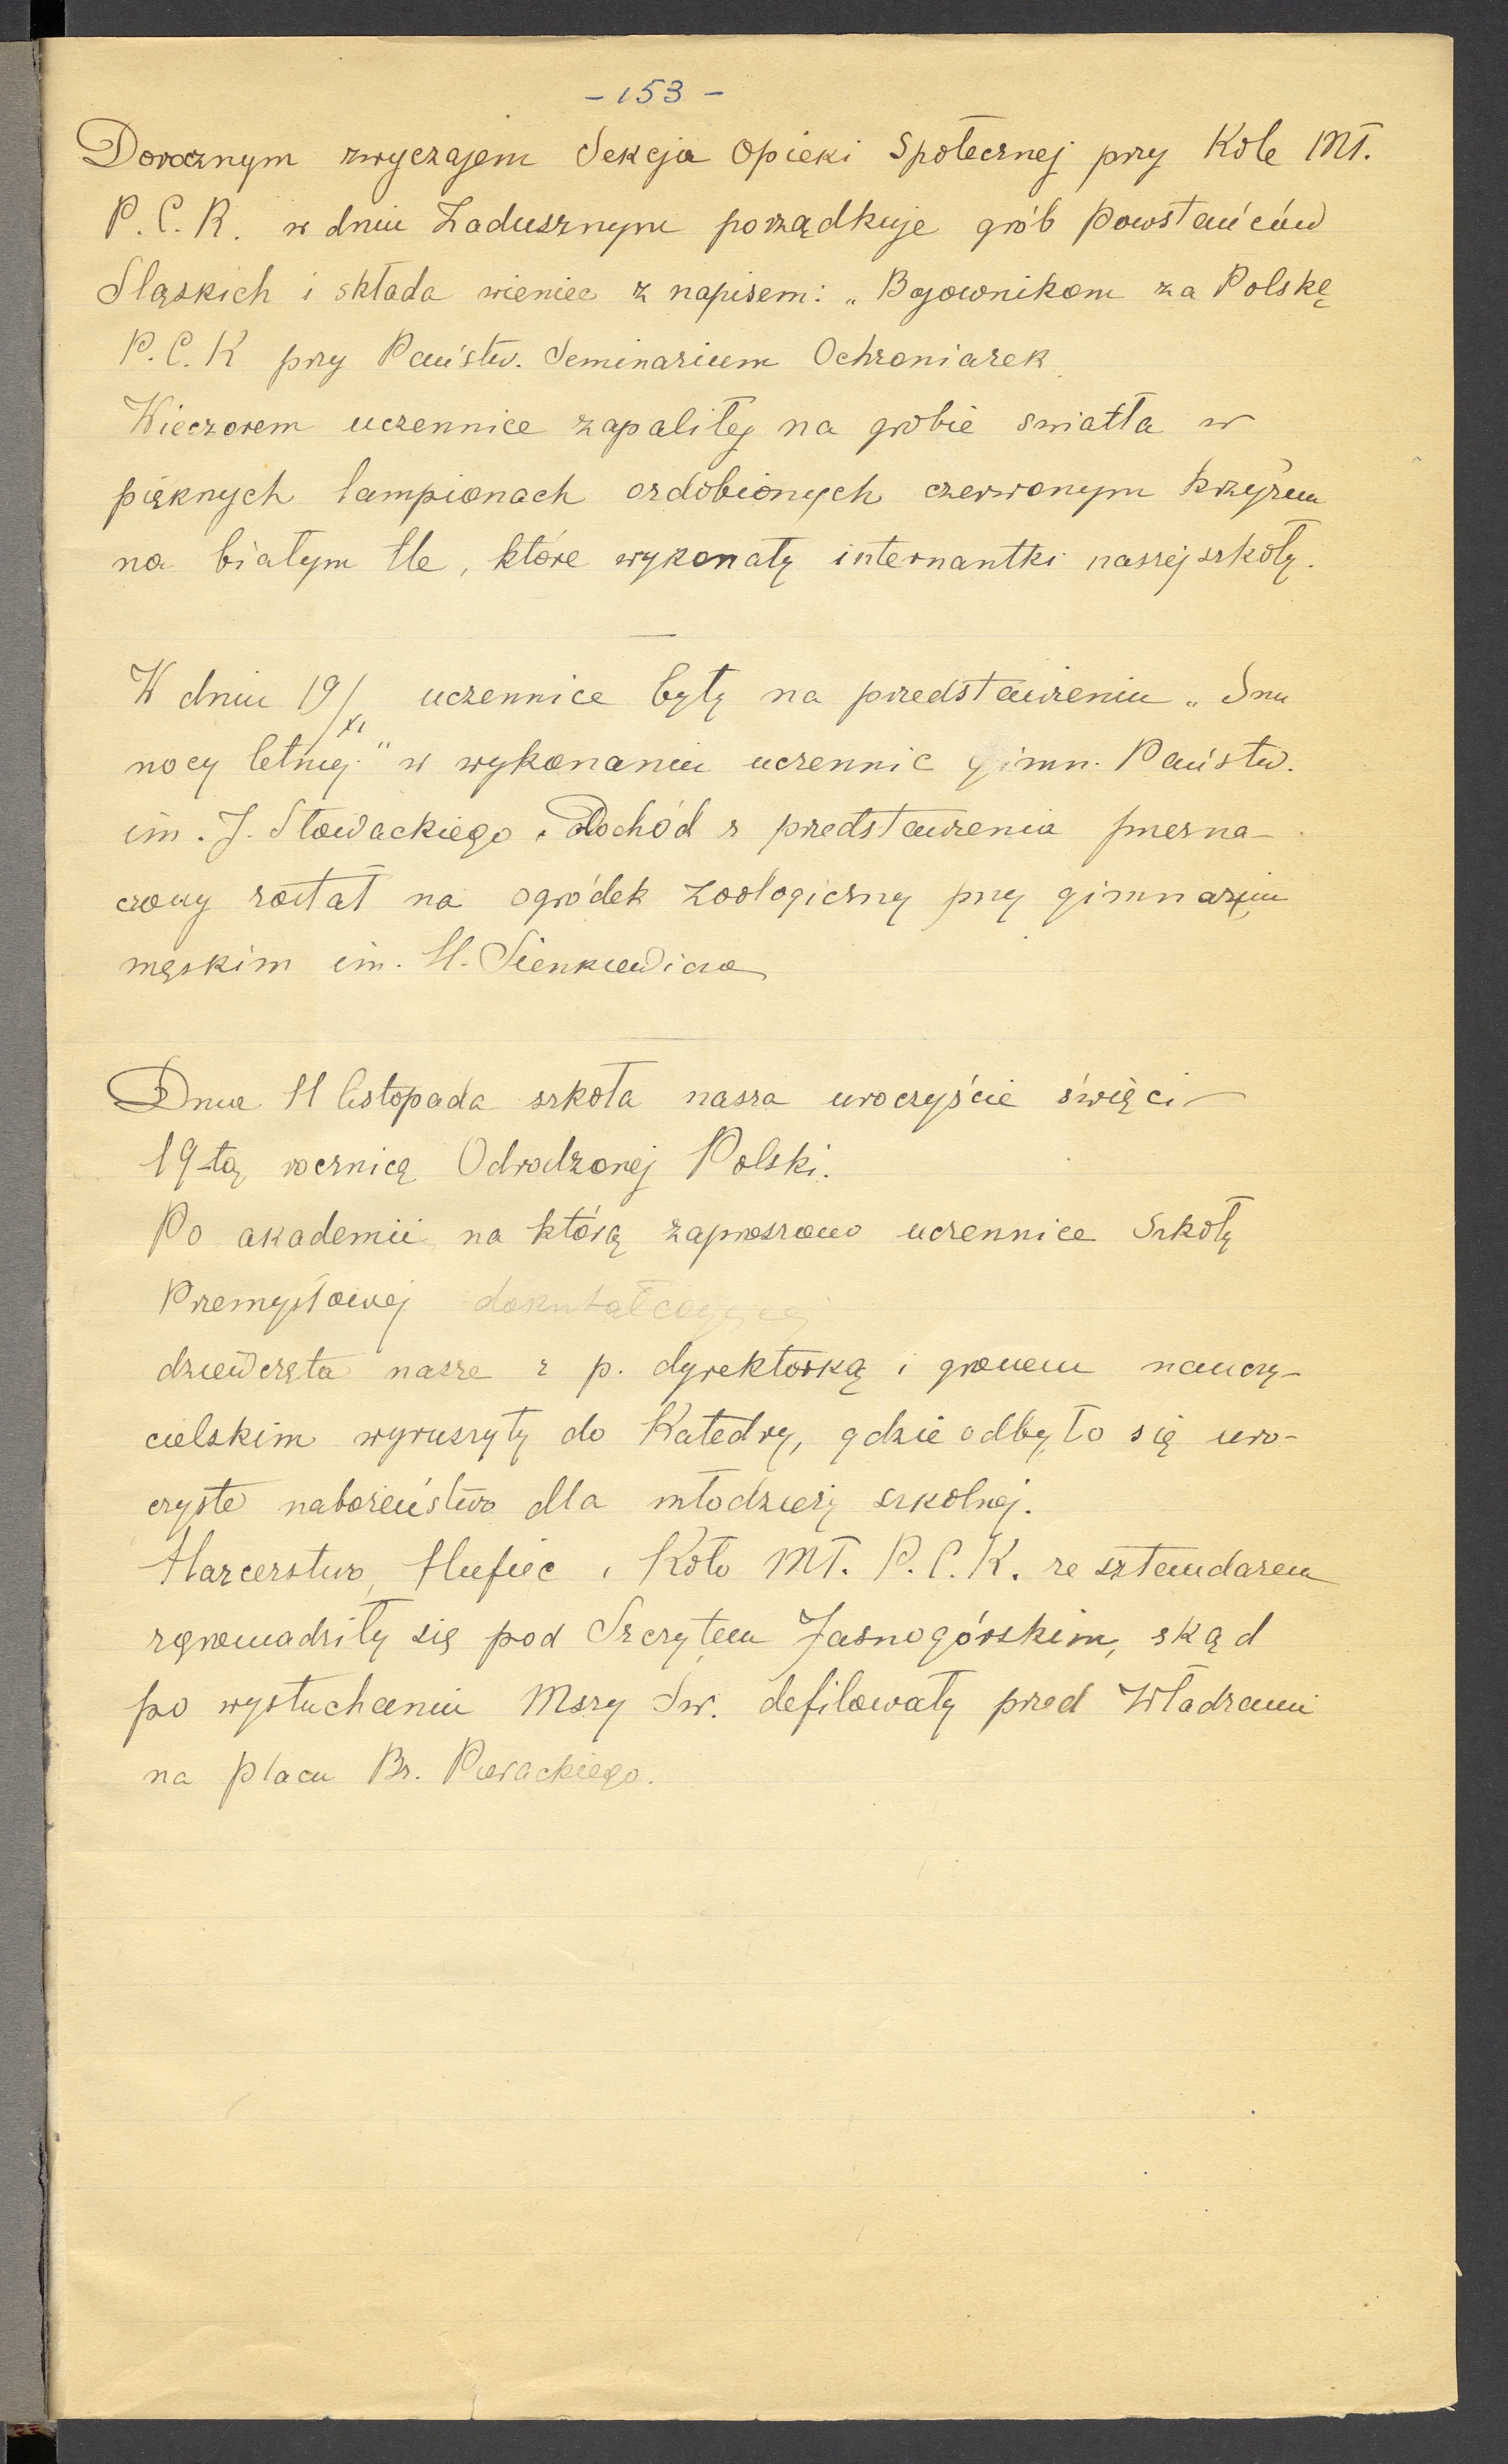 - 153 -
Dorocznym zwyczajem Sekcja Opieki Społecznej przy Kole Mł.
P.C.K. w dniu Zadusznym porządkuje grób Powstańców
Sląskich i składa wieniec z napisem: „Bojownikom za Polskę
P.C.K przy Państw. Seminarium Ochroniarek
Wieczorem uczennice zapaliły na grobie swiatła w
pięknych lampionach ozdobionych czerwonym krzyżem
na białym tle, które wykonały internantki naszej szkoły.
W dniu 19/XI uczennice były na przedstawieniu „Snu
nocy letniej" w wykonaniu uczennic gimn. Państw.
im. J. Słowackiego. Dochód z przedstawienia przezna-
czony został na ogródek zoologiczny przy gimnazjum
męskim im. H. Sienkiewicza
Dnia 11 listopada szkoła nasza uroczyście święci
19-tą rocznicę Odrodzonej Polski.
Po akademii na którą zaproszono uczennice Szkoły
Przemysłowej dokształcającej
dziewczęta nasze z p. dyrektorką i gronem nauczy-
cielskim wyruszyły do Katedry, gdzie odbyło się uro-
czyste nabożeństwo dla młodzieży szkolnej.
Harcerstwo, Hufiec i Koło Mł. P.C.K. ze sztandarem
zgromadziły się pod Szczytem Jasnogórskim, skąd
po wysłuchaniu Mszy Sw. defilowały przed Władzami
na placu Br. Pierackiego.